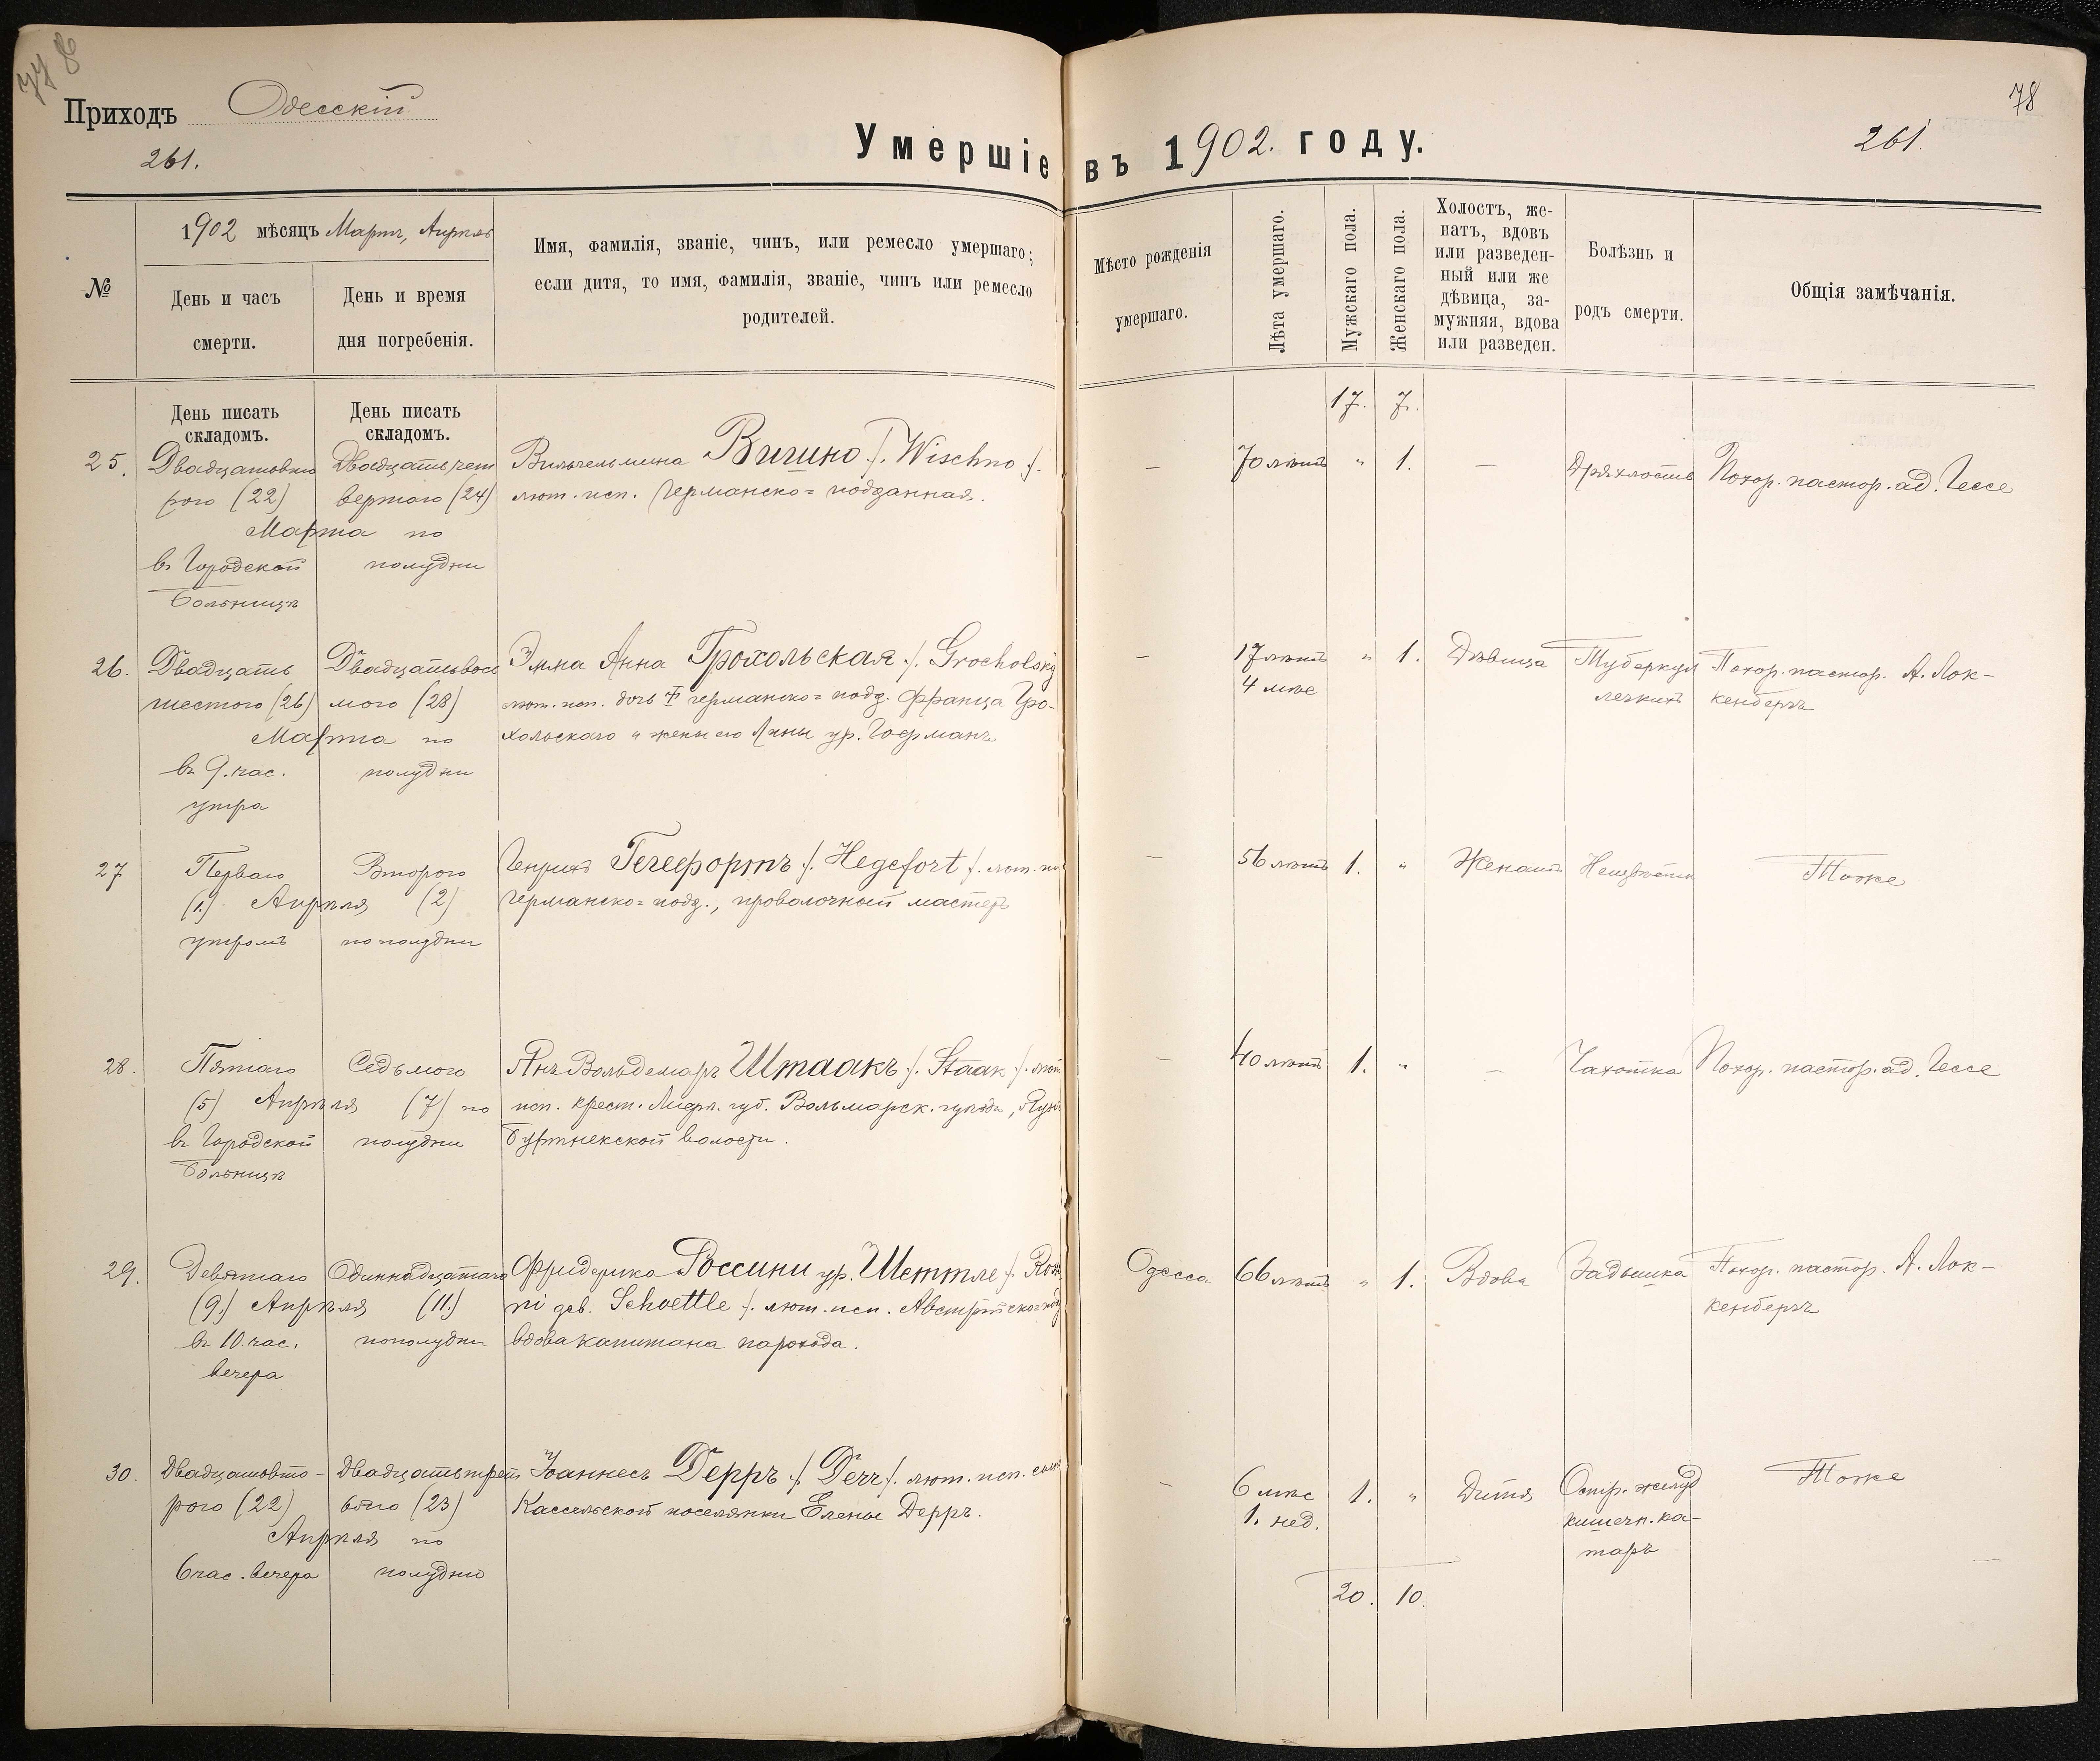 78
Приходъ Одесскій
261.
Умершіе въ 1902. году.
261.
78
№
1902 мѣсяцъ Мартъ, Апрель
День и часъ
смерти.
День и время
дня погребенія.
Имя, фамилія, званіе, чинъ, или ремесло умершаго;
если дитя, то имя, фамилія, званіе, чинъ или ремесло
родителей.
Мѣсто рожденія
умершаго.
Лѣта умершаго.
Мужскаго пола.
Женскаго пола.
Холостъ, же-
натъ, вдовъ
или разведен-
ный или же
дѣвица, за-
мужняя, вдова
или разведен.
Болѣзнь и
родъ смерти.
Общія замѣчанія.
День писать
складомъ.
День писать
складомъ.
17. 7.
25. Двадцатовто
рого (22)
Двадцатьчет
вертаго (24)
Марта по
въ Городской
полудни
Больницѣ
Вильгельмина Вишно /. Wischno /.
лют. исп. Германско= подданная.
— 70 лѣтъ " 1. — Дряхлость Похор. пастор. ад. Гессе
26. Двадцать
шестого (26)
Двадцатьвось
мого (28)
Марта по
въ 9. час.
полудни
утра
Эмма Анна Грохольская /. Grocholsky
лют. исп. дочь германско= подд. Франца Гро-
хольскаго и жены его Анны ур. Гофманъ
— 17 лѣтъ " 1. Дѣвица Туберкул Похор. пастор. А. Лок-
4 мѣс легкихъ кенбергъ
27 Перваго Второго
(1.) Апрѣля (2)
утромъ пополудни
Генрихъ Гегефортъ /. Hegefort /. лют. ис
Германско= подд., проволочный мастеръ
— 56 лѣтъ 1. " Женатъ Тоже
28. Пятаго Седьмого
(5) Апрѣля (7) по
въ Городской полудни
Больницѣ
Янъ Вольдемаръ Штаакъ /. Staak /. лют
исп. крест. Лифл. губ. Вольмарск. уѣзда,
Буртнекской волости.
— 40 лѣтъ 1. " — Чахотка Похор. пастор. ад. Гессе
29. Девятаго Одиннадцатаго
(9.) Апрѣля (11.)
въ 10. час. пополудни
вечера
Фридерика Россини ур. Шеттле /. Rossi
ni geb. Schoettle /. лют. исп. Австрійско= под
вдова капитана парохода.
Одесса 66 лѣтъ " 1. Вдова Задышка Похор. пастор. А. Лок-
кенбергъ
30. Двадцатовто-
рого (22)
Двадцатьтрет
ьяго (23)
Апрѣля по
6 час. вечера полудни
Іоаннесъ Дерръ /. Derr /. лют. исп. сынъ
Кассельской поселянки Елены Дерръ.
— 6 мѣс 1. " Дитя Остр. желуд Тоже
1. нед. кишечн. ка-
таръ
20. 10.